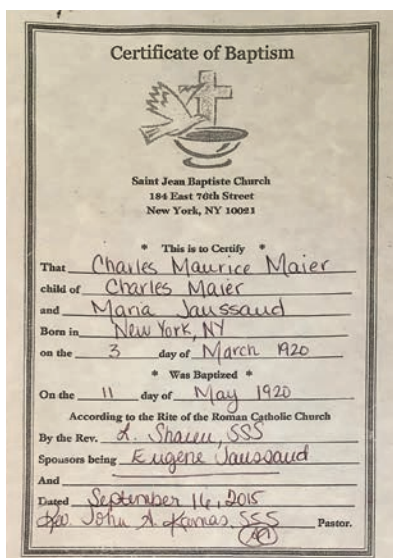 Certificate of Baptism
Saint Jean Baptiste Church
184 East 76th Street
New York, NY 10021
* This is to Certify *
That Charles Maurice Maier
child of Charles Maier
and Maria Jaussaud
Born in New York, NY
on the 3 day of March 1920
* Was Baptized *
On the 11 day of May 1920
According to the Rite of the Roman Catholic Church
By the Rev. SSS
Sponsors being Eugene Jaussaud
And
Dated September 16, 2015
Rev. John A. Kamas, SSS Pastor.